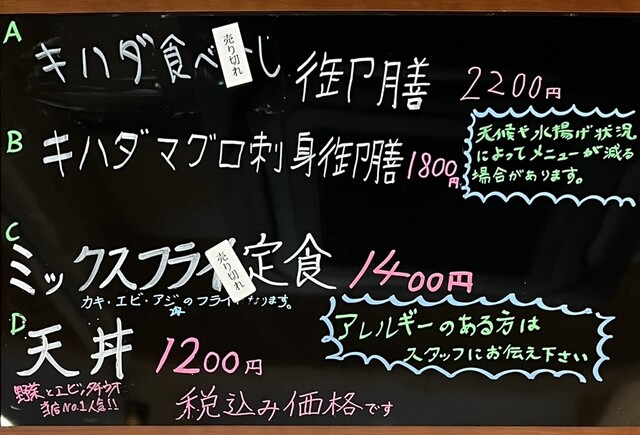 A
キハダ食べ 売り切れ し 御膳 2200円
B
キハダマグロ刺身御膳 1800円
天候や水揚げ状況
によってメニューが減る
場合があります。
C
ミックスフライ定食 1400円
売り切れ
カキ・エビ・アジのフライ なります。
D
天丼 1200円
野菜とエビ、タチウオ
当店No.1人気!!
アレルギーのある方は
スタッフにお伝え下さい
税込み価格です